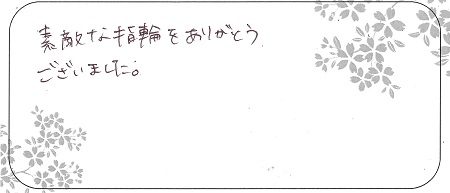 素敵な指輪をありがとう
ございました。